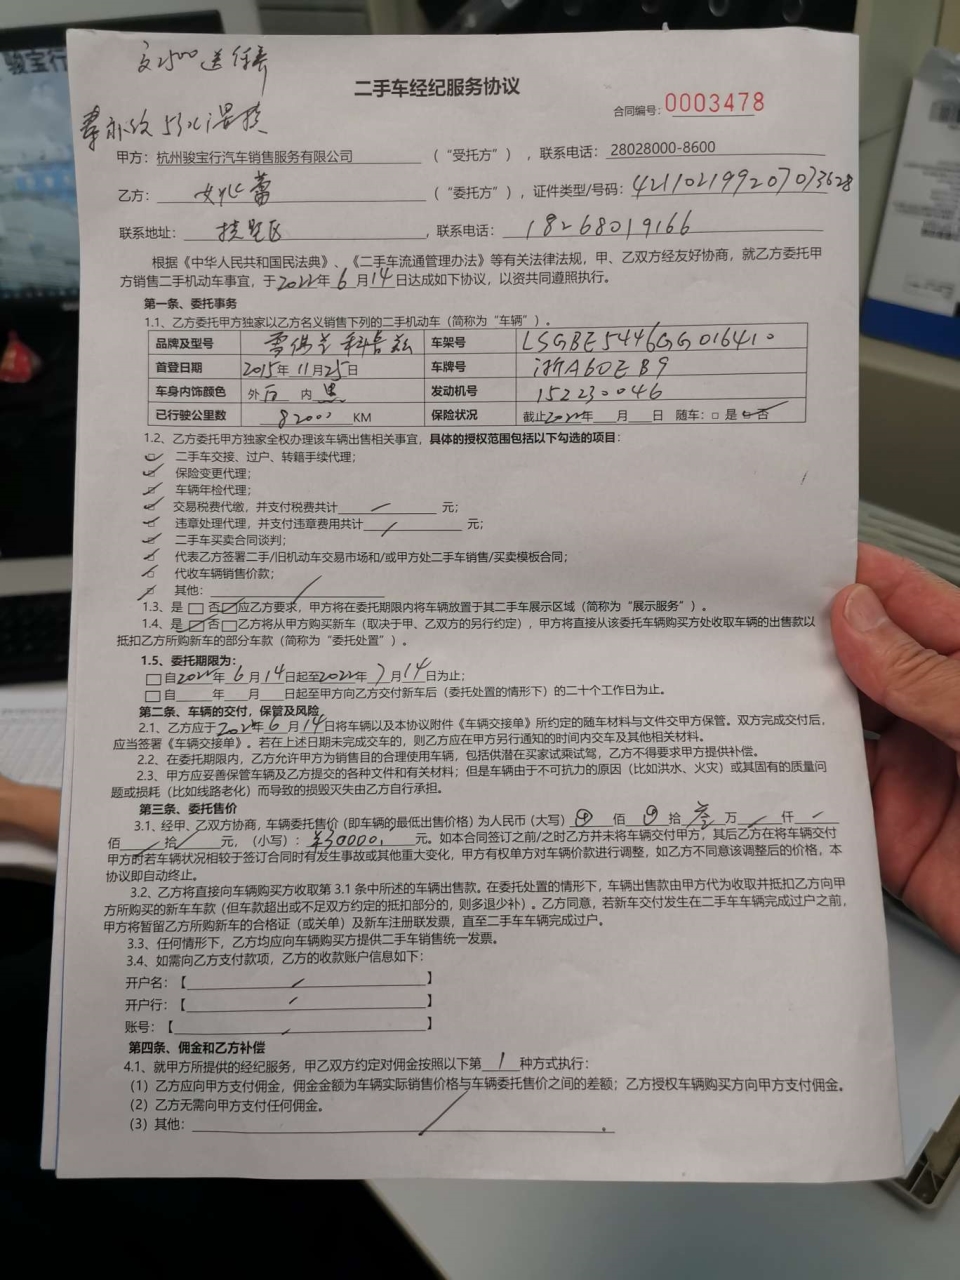 骏宝行
二手车经纪服务协议
合同编号：0003478
甲方：杭州骏宝行汽车销售服务有限公司（“受托方”），联系电话：28028000-8600
乙方：（“委托方”），证件类型/号码：421102199207073628
联系地址：拱墅区，联系电话：18268019166
根据《中华人民共和国民法典》、《二手车流通管理办法》等有关法律法规，甲、乙双方经友好协商，就乙方委托甲
方销售二手机动车事宜，于2022年6月14日达成如下协议，以资共同遵照执行。
第一条、委托事务
1.1、乙方委托甲方独家以乙方名义销售下列的二手机动车（简称为“车辆”）。
品牌及型号 雪佛兰科鲁兹 车架号 LSGBE5446GG016410
首登日期 2015年11月25日 车牌号 浙A60EB9
车身内饰颜色 外 内黑 发动机号 152230046
已行驶公里数 82000 KM 保险状况 截止2022年 月 日 随车：□ 是 □ 否
1.2、乙方委托甲方独家全权办理该车辆出售相关事宜，具体的授权范围包括以下勾选的项目：
二手车交接、过户、转籍手续代理；
保险变更代理；
车辆年检代理；
交易税费代缴，并支付税费共计 元；
违章处理代理，并支付违章费用共计 元；
二手车买卖合同谈判；
代表乙方签署二手/旧机动车交易市场和/或甲方处二手车销售/买卖模板合同；
代收车辆销售价款；
其他：
1.3、是 □ 否 □ 应乙方要求，甲方将在委托期限内将车辆放置于其二手车展示区域（简称为“展示服务”）。
1.4、是 □ 否 □ 乙方将从甲方购买新车（取决于甲、乙双方的另行约定），甲方将直接从该委托车辆购买方处收取车辆的出售款以
抵扣乙方所购新车的部分车款（简称为“委托处置”）。
1.5、委托期限为：
□ 自2022年6月14日起至2022年7月14日为止；
□ 自 年 月 日起至甲方向乙方交付新车后（委托处置的情形下）的二十个工作日为止。
第二条、车辆的交付，保管及风险
2.1、乙方应于2022年6月14日将车辆以及本协议附件《车辆交接单》所约定的随车材料与文件交甲方保管。双方完成交付后，
应当签署《车辆交接单》。若在上述日期未完成交车的，则乙方应在甲方另行通知的时间内交车及其他相关材料。
2.2、在委托期限内，乙方允许甲方为销售目的合理使用车辆，包括供潜在买家试乘试驾，乙方不得要求甲方提供补偿。
2.3、甲方应妥善保管车辆及乙方提交的各种文件和有关材料；但是车辆由于不可抗力的原因（比如洪水、火灾）或其固有的质量问
题或损耗（比如线路老化）而导致的损毁灭失由乙方自行承担。
第三条、委托售价
3.1、经甲、乙双方协商，车辆委托售价（即车辆的最低出售价格）为人民币（大写） 佰 拾 叁 万 仟
佰 拾 元，（小写）：¥30000. 元。如本合同签订之前/之时乙方并未将车辆交付甲方，其后乙方在将车辆交付
甲方时若车辆状况相较于签订合同时有发生事故或其他重大变化，甲方有权单方对车辆价款进行调整，如乙方不同意该调整后的价格，本
协议即自动终止。
3.2、乙方将直接向车辆购买方收取第 3.1 条中所述的车辆出售款。在委托处置的情形下，车辆出售款由甲方代为收取并抵扣乙方向甲
方所购买的新车车款（但车款超出或不足双方约定的抵扣部分的，则多退少补）。乙方同意，若新车交付发生在二手车车辆完成过户之前，
甲方将暂留乙方所购新车的合格证（或关单）及新车注册联发票，直至二手车车辆完成过户。
3.3、任何情形下，乙方均应向车辆购买方提供二手车销售统一发票。
3.4、如需向乙方支付款项，乙方的收款账户信息如下：
开户名：【 】
开户行：【 】
账号：【 】
第四条、佣金和乙方补偿
4.1、就甲方所提供的经纪服务，甲乙双方约定对佣金按照以下第 1 种方式执行：
（1）乙方应向甲方支付佣金，佣金金额为车辆实际销售价格与车辆委托售价之间的差额；乙方授权车辆购买方向甲方支付佣金。
（2）乙方无需向甲方支付任何佣金。
（3）其他：